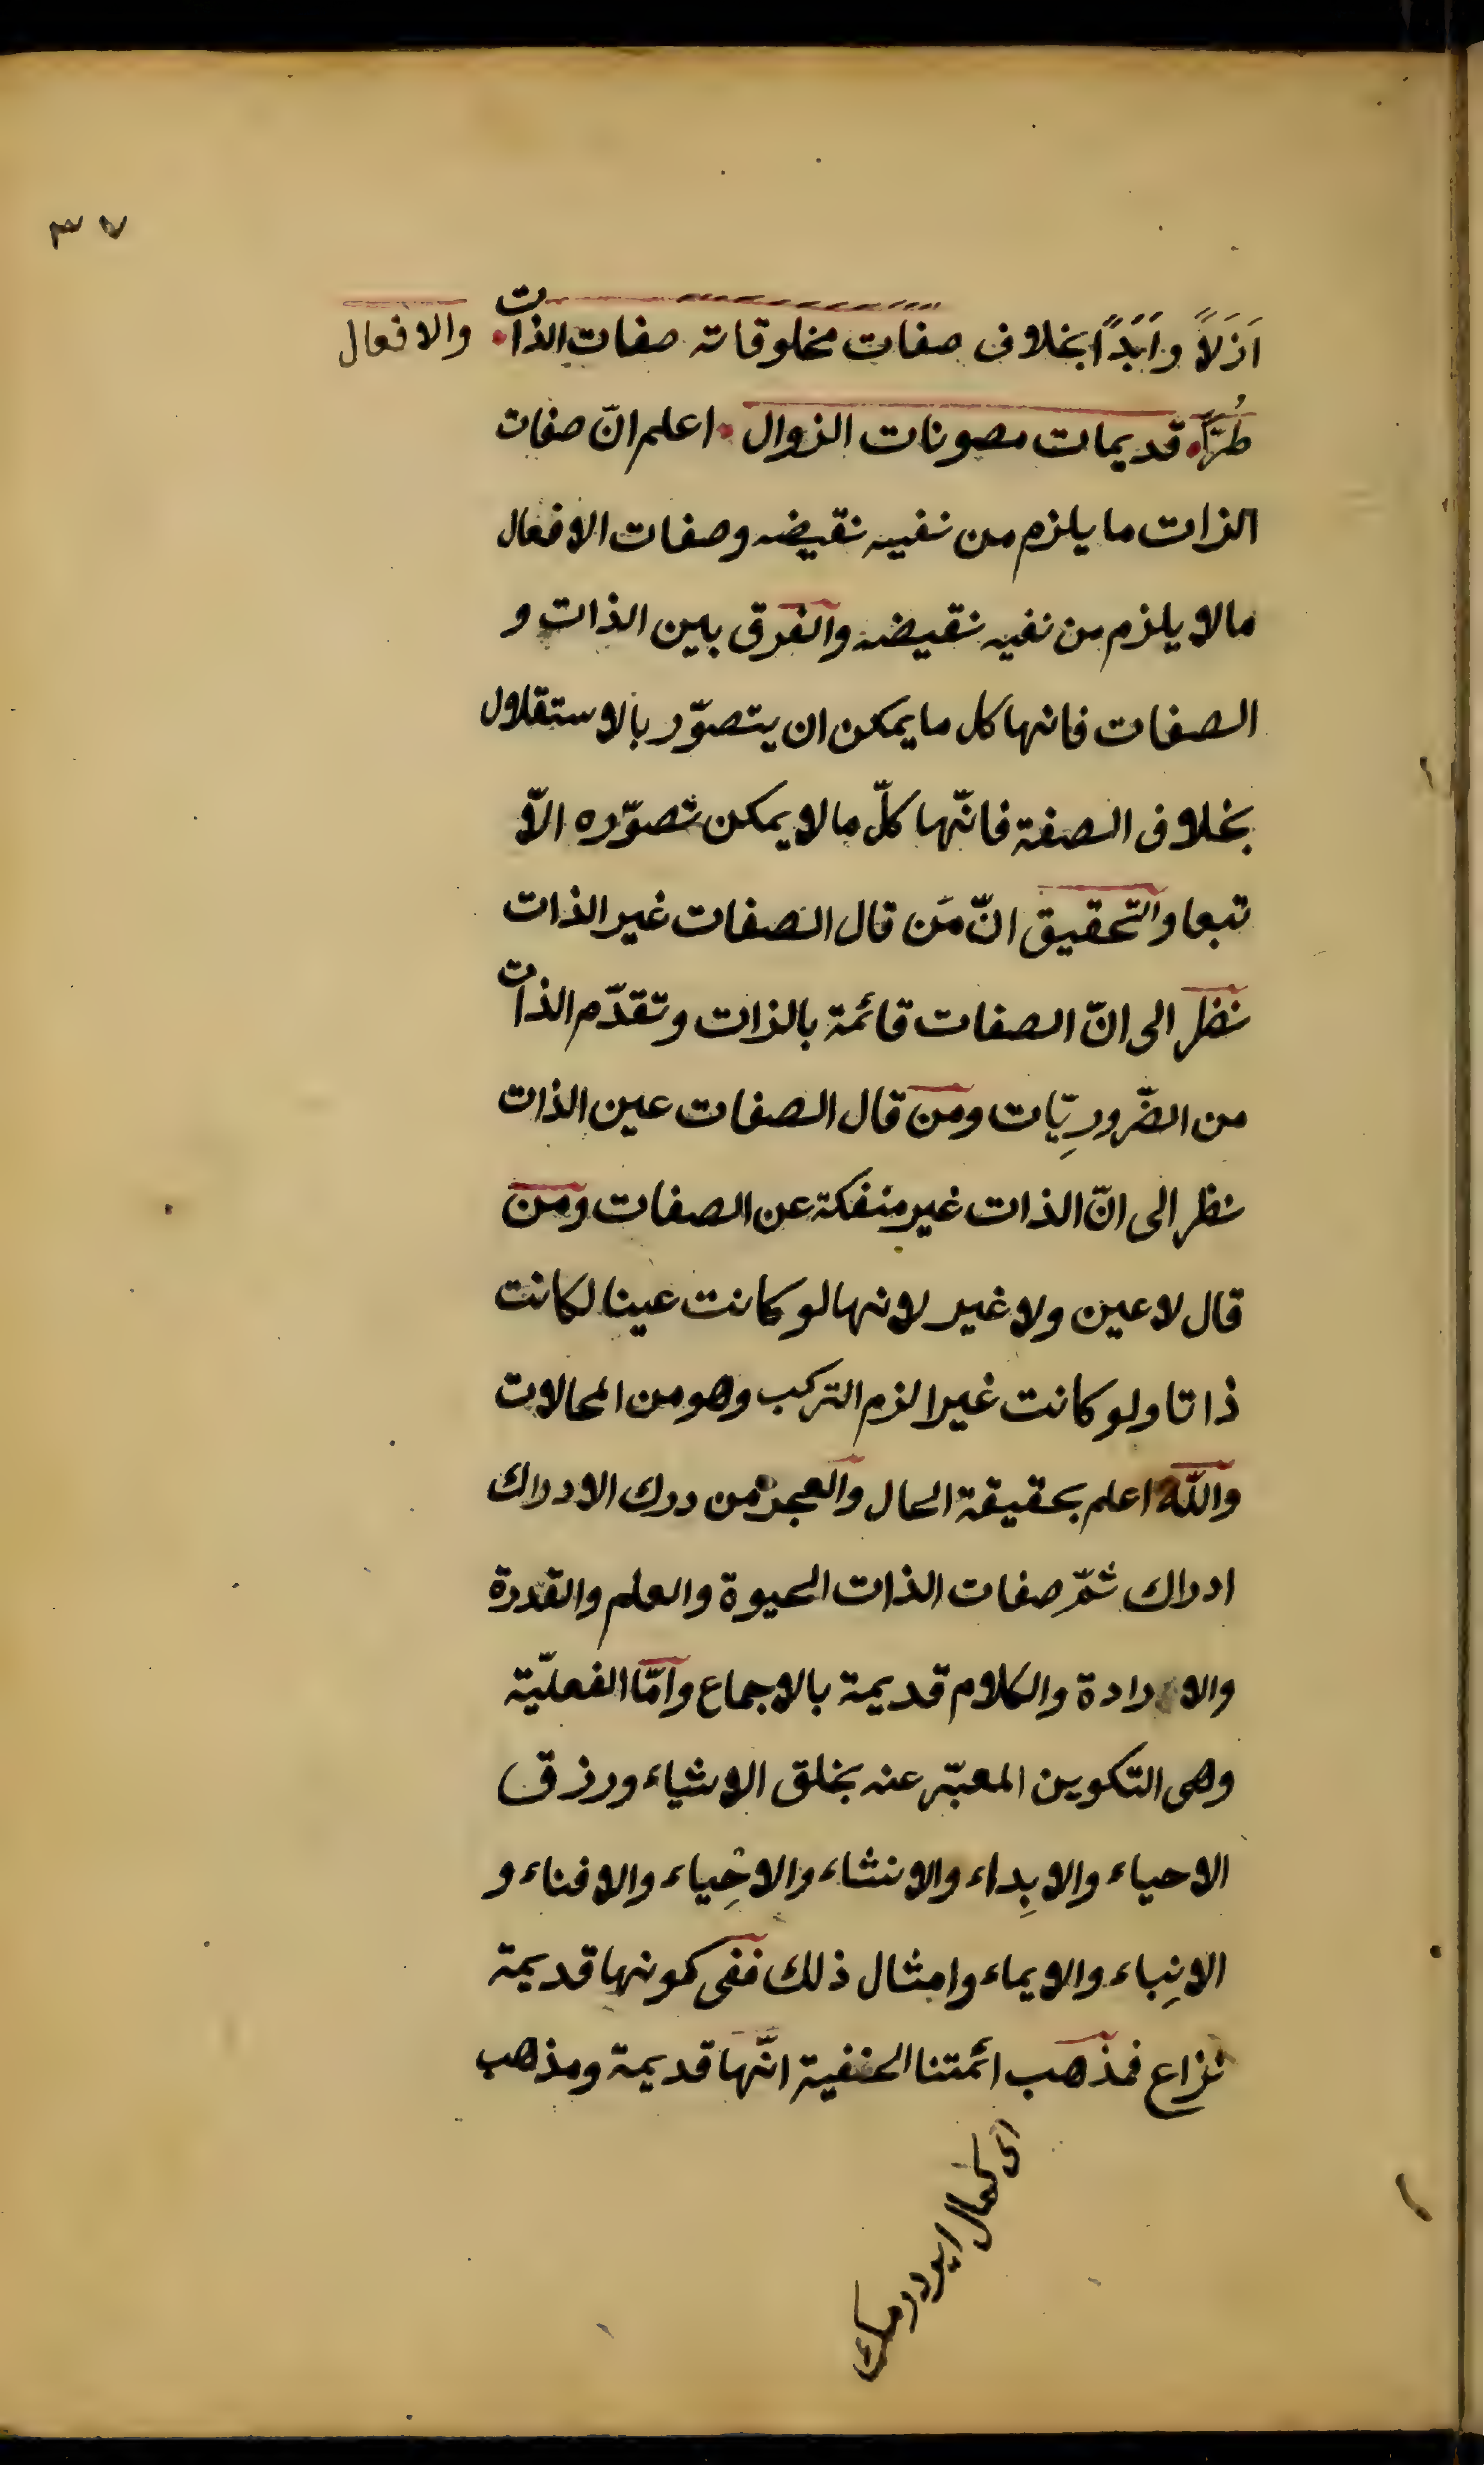 ٣٧
اَزَلاً وَاَبَدًا بخلاف صفات مخلوقاته صفات الذات والافعال
طُرًّا قديمات مصونات الزوال اعلم انّ صفات
الذات ما يلزم من نفيه نقيضه وصفات الافعال
مالا يلزم من نفيه نقيضه والفرق بين الذات و
الصفات فانها كل ما يمكن ان يتصوّر بالاستقلال
بخلاف الصفة فانّها كلّ مالا يمكن تصوّره الاّ
تبعا والتحقيق انّ مَن قال الصفات غير الذات
نظر الى انّ الصفات قائمة بالذات وتقدّم الذات
من الضّرورِيّات ومن قال الصفات عين الذات
نظر الى انّ الذات غير منفكة عن الصفات ومن
قال لا عين ولا غير لانها لو كانت عينا لكانت
ذاتا ولو كانت غيرا لزم التركب وهو من المحالات
واللّه اعلم بحقيقة الحال والعجز من درك الادراك
ادراك ثمّ صفات الذات الحيوة والعلم والقدرة
والارادة والكلام قديمة بالاجماع وامّا الفعليّة
وهى التكوين المعبّر عنه بخلق الاشياء ورزق
الاحياء والابِداء والانشاء والاحِياء والافناء و
الانِباء والايماء وامثال ذلك ففى كونها قديمة
نزاع فمذهب ائمتنا الحنفية انّها قديمة ومذهب